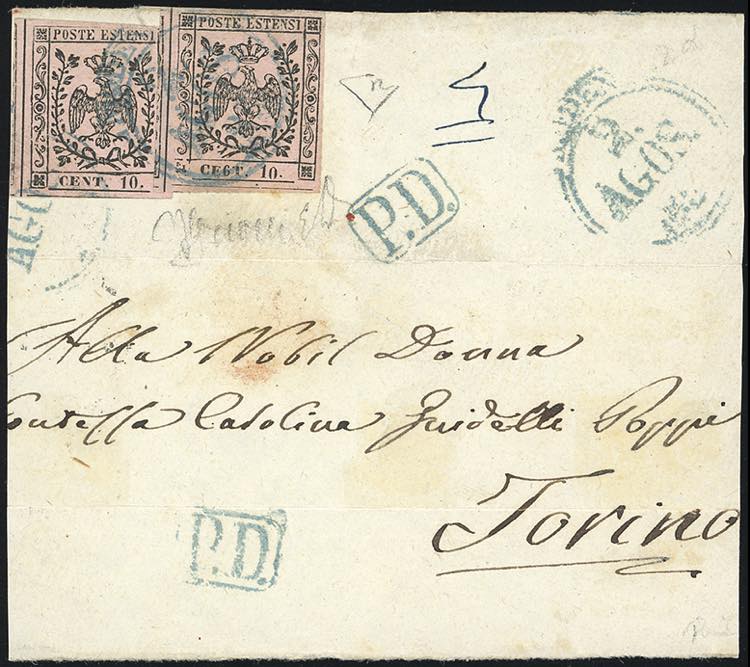 POSTE ESTENSI
CENT. 10.
POSTE ESTENSI
CE6T. 10.
AGO
2.
AGOS.
P.D.
Alla Nobil Donna
Contessa Carolina Guidelli Poppi
Torino
P.D.